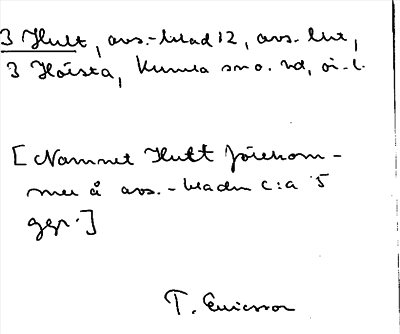 3 Hult, avs.-blad 12, avs. hut,
3 Hörsta, Kumla sn o. hd, ör. l.
[Namnet Hult förekom-
mer å avs.-bladen c:a 5
ggr.]
T. Ericsson